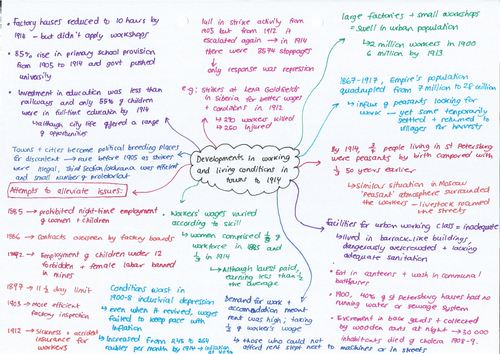 Developments in working
and living conditions in
towns to 1914
• Factory hours reduced to 10 hours by
1914 - but didn't apply workshops
• 85% rise in primary school provision
from 1905 to 1914 and govt pushed
university
• Investment in education was less than
railways and only 55% of children
were in full-time education by 1914
↳ although city life offered a range
of opportunities
Towns + cities become political breeding places
for discontent → rare before 1905 as strikes
were illegal, Third Section/Okhrana was efficient
and small number of proletariat
Attempts to alleviate issues:
1885 → prohibited night-time employment
of women + children
1886 → contracts overseen by factory boards
1892 → Employment of children under 12
forbidden + female labour banned
in mines
1897 → 11½ day limit
1903 → more efficient
factory inspection
1912 → Sickness + accident
insurance for
workers
lull in strike activity from
1905 but from 1912 it
escalated again → in 1914
there were 3574 stoppages
↳ only response was repression
e.g: Strikes at Lena Goldfields
in Siberia for better wages
+ conditions in 1912
↳ 270 workers killed
↳ 250 injured
large factories + small workshops
= swell in urban population
↳ 2 million workers in 1900
6 million by 1913
1867-1917, Empire's population
quadrupled from 7 million to 28 million
↳ influx of peasants looking for
work → yet some temporarily
settled + returned to
villages for harvests
By 1914, ¾ people living in St Petersburg
were peasants by birth compared with
⅓ 50 years earlier
↳ similar situation in Moscow
'Peasant' atmosphere surrounded
the workers - livestock roamed
the streets
Facilities for urban working class = inadequate
↳ lived in barrack-like buildings,
dangerously overcrowded + lacking
adequate sanitation
• Eat in canteens + wash in communal
bathhouses
• 1900, 40% of St Petersburg houses had no
running water or sewage system
• Excrement in back yards + collected
by wooden carts at night → 30 000
inhabitants died of cholera 1908-9.
• Workers' wages varied
according to skill
↳ women comprised ⅕ of
workforce in 1885 and
⅓ in 1914
↳ Although lowest paid,
earning less than ½
the average
Conditions worst in
1900-8 industrial depression
↳ even when it revived, wages
failed to keep pace with
inflation
↳ Increased from 245 to 264
roubles per month by 1914 → inflation
Demand for work +
accommodation meant
rent was high, taking
½ of worker's wage
↳ those who could not
afford rent slept next to
machines or in streets